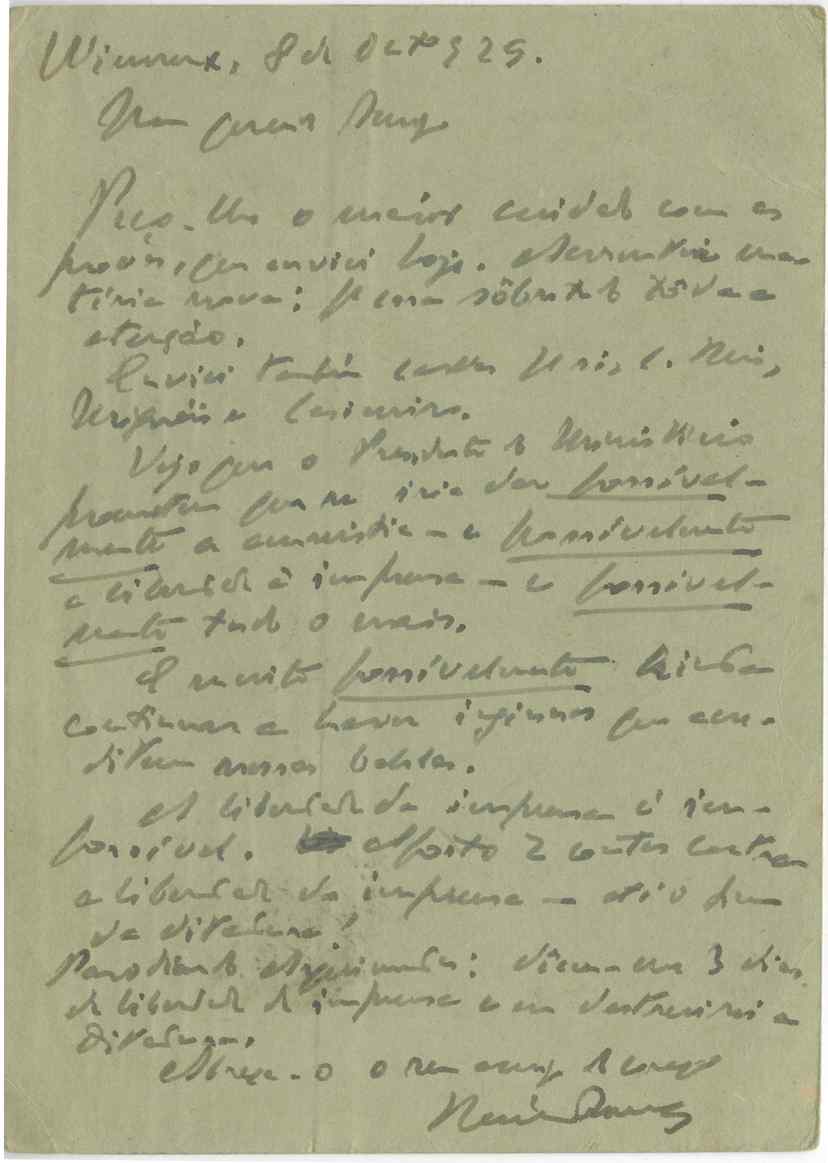 Wimereux, 8 de Out. 929.
Meu querido Amigo
Peço-lhe o maior cuidado com as
provas, que enviei hoje. Acrescentei ma-
téria nova: para essa sôbretudo tôda a
atenção.
Enviei também cartas para si, C. Reis,
e Casimiro.
Vejo que o Presidente do Ministério
prometeu que se iria dar possível-
mente a amnistia — e possívelmente
a liberdade à imprensa — e possível-
mente tudo o mais.
E muito possívelmente hà-de
continuar a haver ingénuos que acre-
ditem nessas balelas.
A liberdade da imprensa é im-
possível. Aposto 2 contos contra
a liberdade da imprensa — até o fim
da ditadura!
Parodiando Arquimedes: dêem-me 3 dias
de liberdade de imprensa e eu destruirei a
ditadura.
Abraça-o o seu amigo do coração